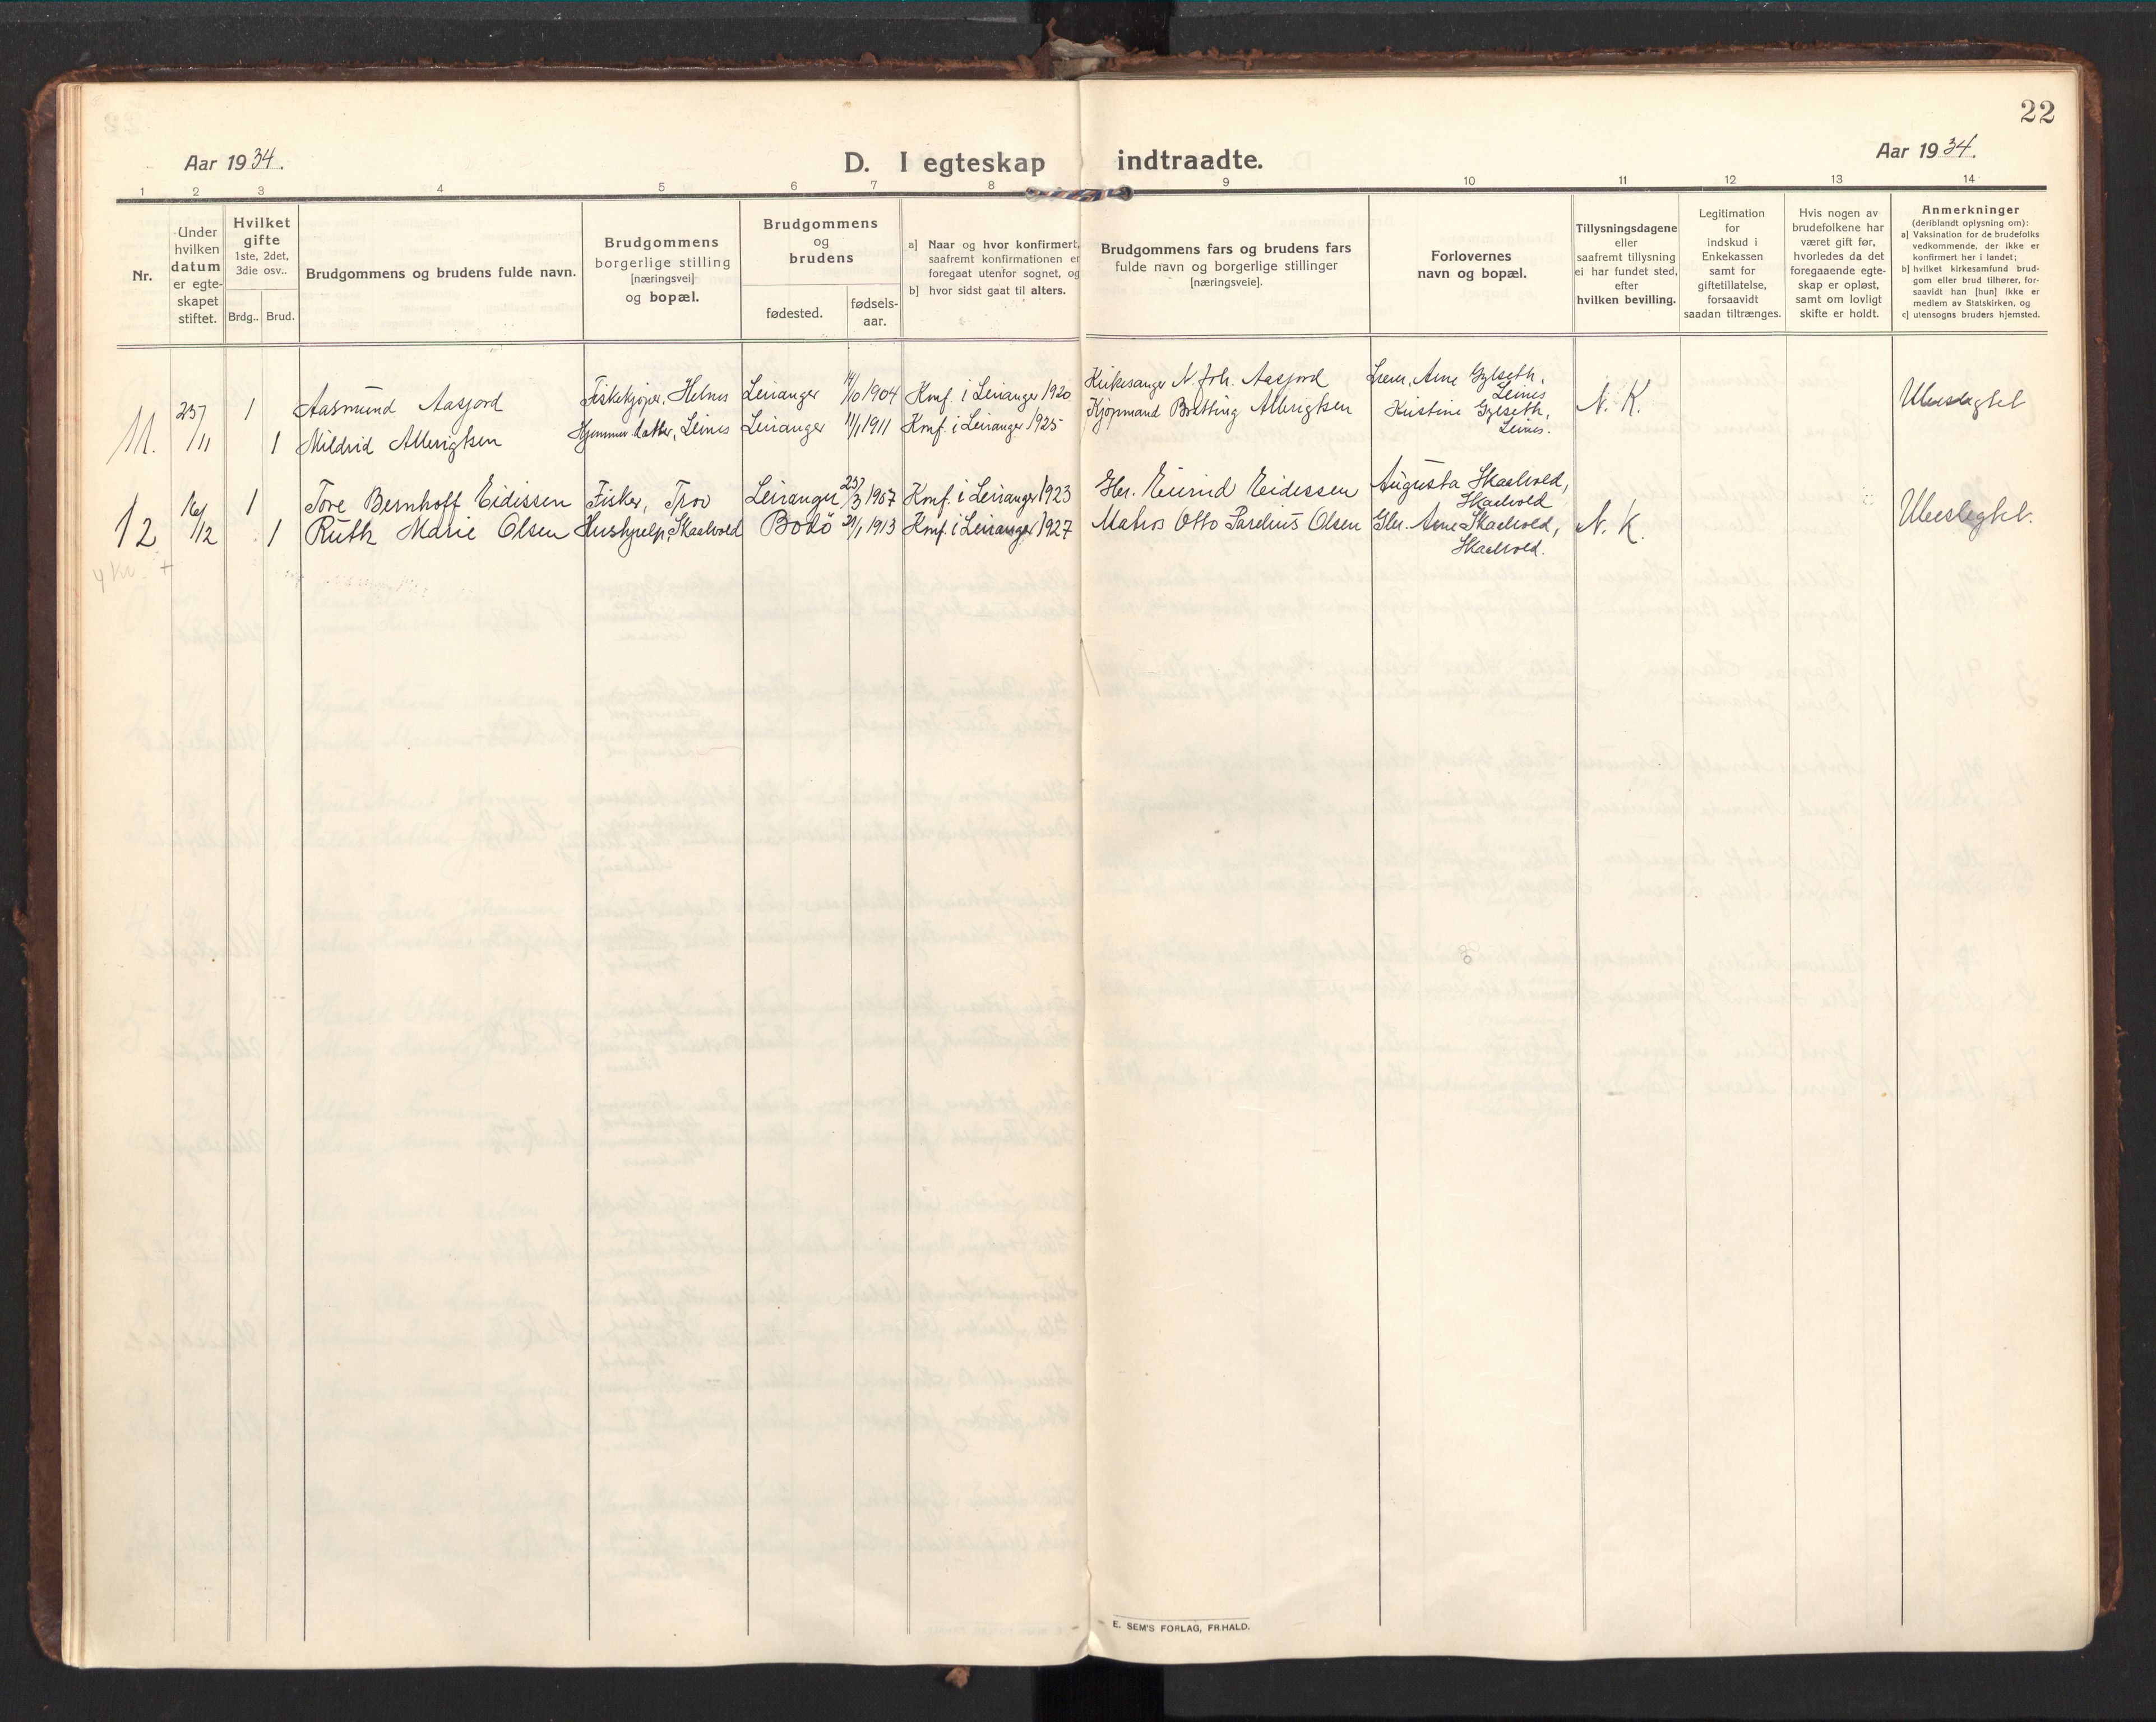 22
Aar 1934.
D. I egteskap indtraadte.
Aar 1934.
1 2 3 4 5 6 7 8 9 10 11 12 13 14
Nr.
Under
hvilken
datum
er egte-
skapet
stiftet.
Hvilket
gifte
1ste, 2det,
3die osv..
Brdg.. Brud.
Brudgommens og brudens fulde navn.
Brudgommens
borgerlige stilling
[næringsvei]
og bopæl.
Brudgommens
og
brudens
fødested.
fødsels-
aar.
a] Naar og hvor konfirmert,
saafremt konfirmationen er
foregaat utenfor sognet, og
b] hvor sidst gaat til alters.
Brudgommens fars og brudens fars
fulde navn og borgerlige stillinger
[næringsveie].
Forlovernes
navn og bopæl.
Tillysningsdagene
eller
saafremt tillysning
ei har fundet sted,
efter
hvilken bevilling.
Legitimation
for
indskud i
Enkekassen
samt for
giftetillatelse,
forsaavidt
saadan tiltrænges.
Hvis nogen av
brudefolkene har
været gift før,
hvorledes da det
foregaaende egte-
skap er opløst,
samt om lovligt
skifte er holdt.
Anmerkninger
(deriblandt oplysning om):
a] Vaksination for de brudefolks
vedkommende, der ikke er
konfirmert her i landet;
b] hvilket kirkesamfund brud-
gom eller brud tilhører, for-
saavidt han [hun] ikke er
medlem av Statskirken, og
c] utensogns bruders hjemsted.
11. 25/11 1 Aasmund Aasjord Fiskekjøper, Helnes Leiranger 14/10 1904 Konf. i Leiranger 1920 Kirkesanger N. Joh. Aasjord Arne Gylseth, Leines N. K. Ubeslegtet
1 Mildrid Albrigtsen Hjemmev. datter, Leines Leiranger 11/1 1911 Konf. i Leiranger 1925 Kjøpmand Brätting Albrigtsen Kristine Gylseth, Leines.
12 16/12 1 Tore Bernhoff Eidissen Fisker, Leiranger 25/3 1907 Konf. i Leiranger 1923 Gbr. Eidissen Augusta Skaelvold, Skaelvold N. K. Ubeslegtet.
1 Ruth Marie Olsen Hushjelp, Skaelvold Bodö 1913 Konf. i Leiranger 1927 Matros Otto Parelius Olsen Gbr. Arne Skaelvold, Skaelvold.
E. SEM'S FORLAG, FR.HALD.